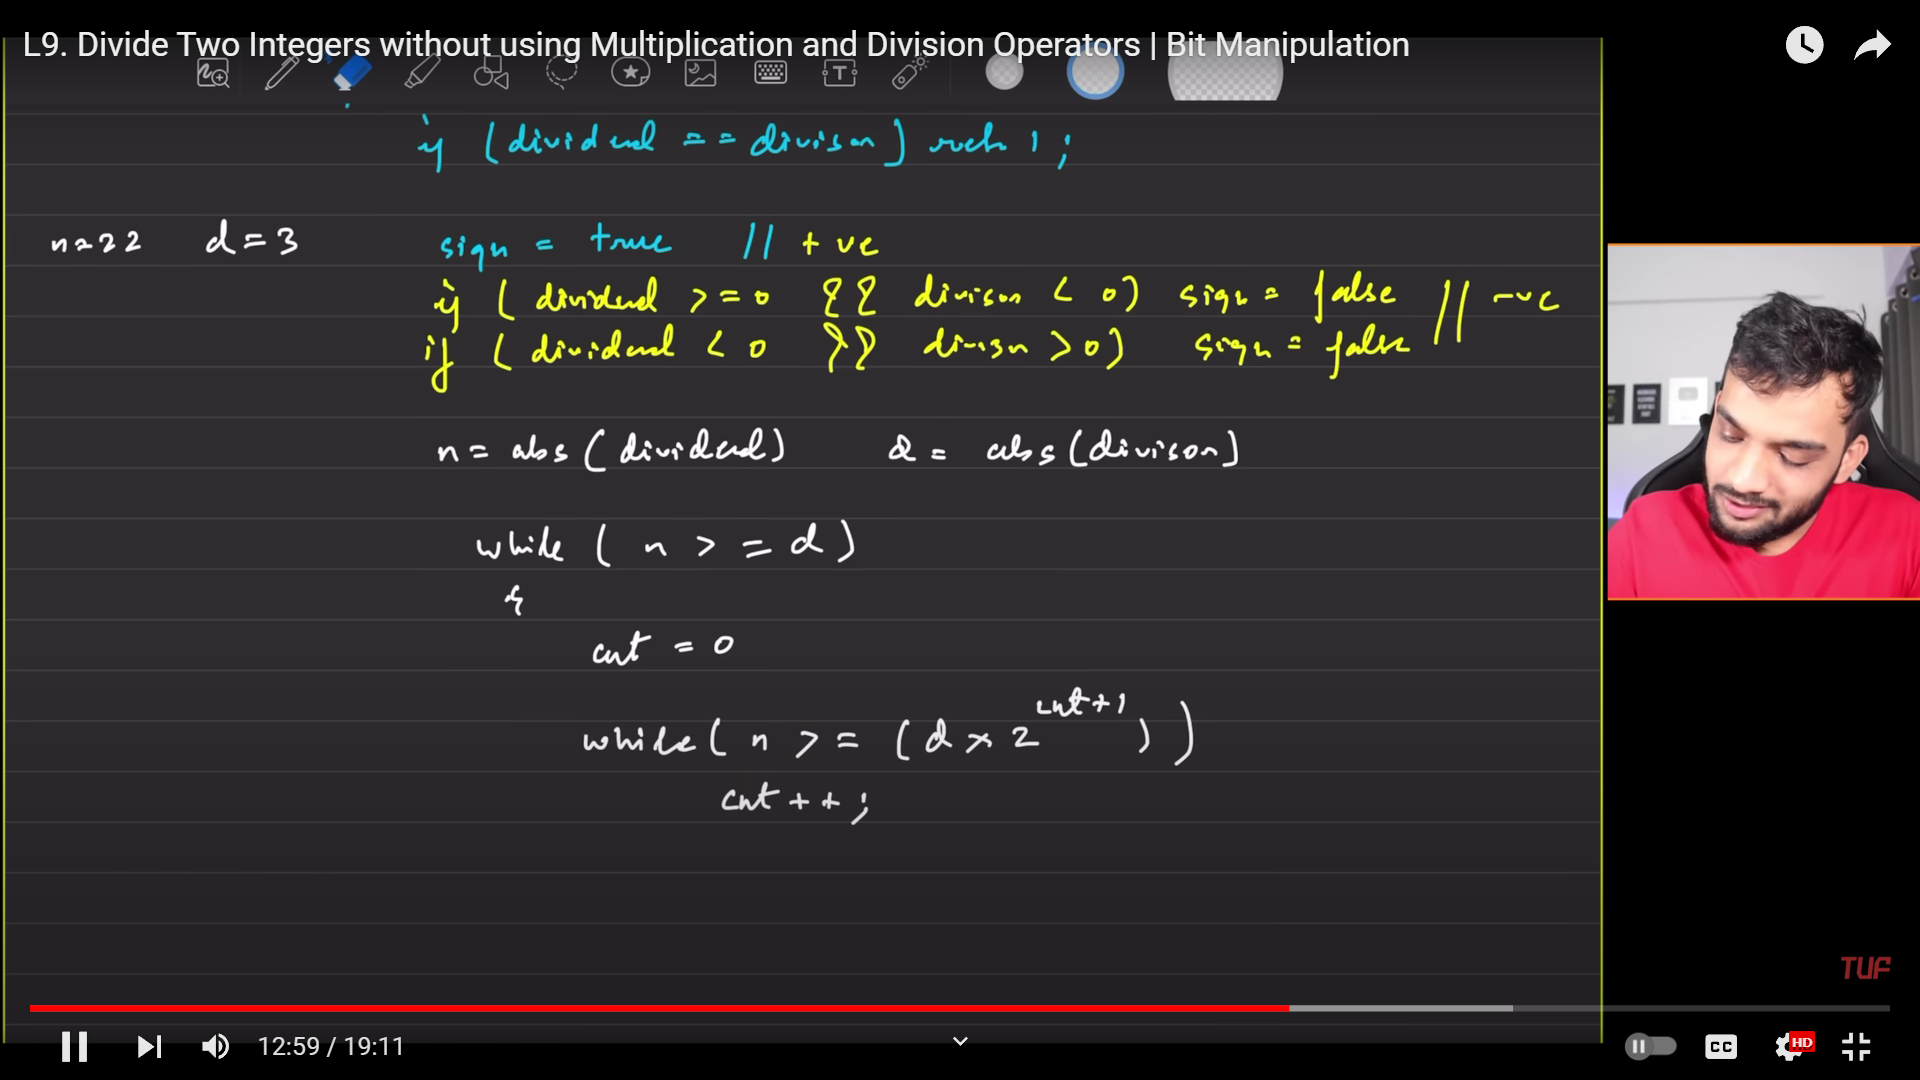 L9. Divide Two Integers without using Multiplication and Division Operators | Bit Manipulation
if (dividend == divison) return 1;
n=22 d=3 sign = true // +ve
if ( dividend >=0 && divison < 0) sign = false // -ve
if ( dividend < 0 && divisn >0) sign = false
n = abs (dividend) d = abs (divison)
while ( n >= d)
{
cnt = 0
while ( n >= (d x 2^cnt+1))
cnt ++;
TUF
12:59 / 19:11
CC
HD